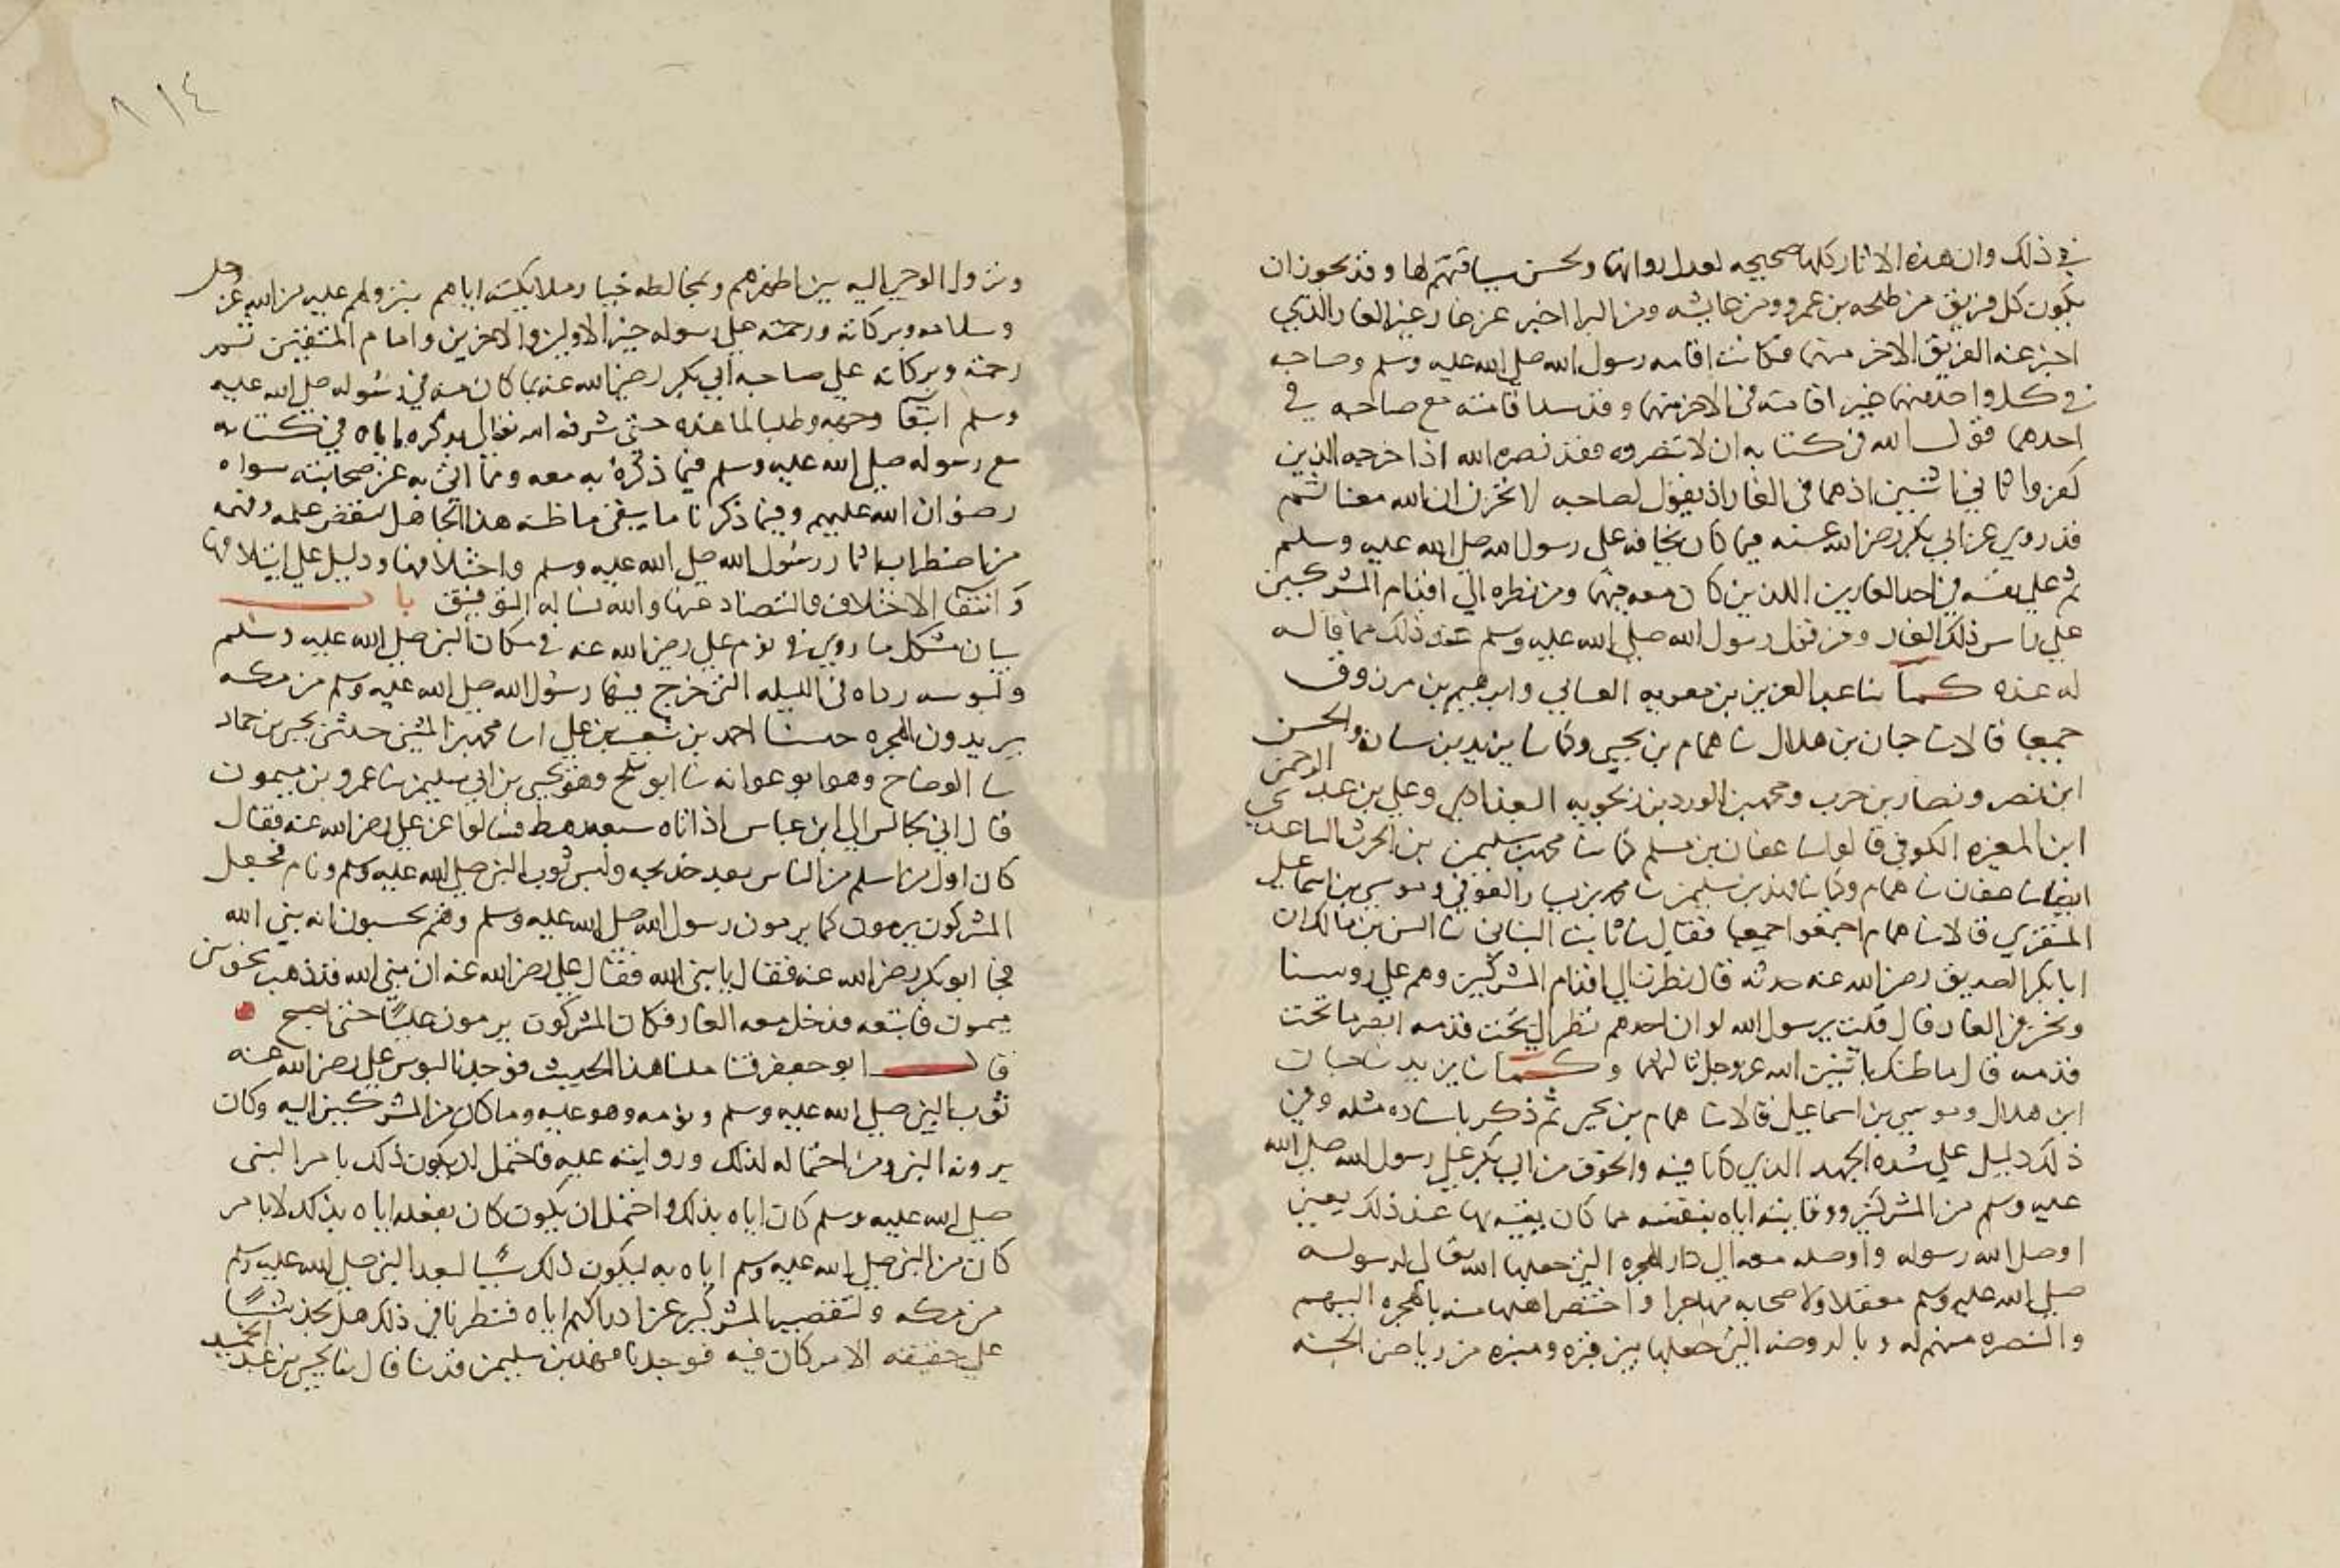 في ذلك وان هذه الاثار كلها صحيحه لعدل رواتها ولحسن سياقتهم لها وقد يجوز ان
يكون كل فريق من طلحه بن عمرو ومن عايشه ومن البرا اخبر عن غار غير الغار الذي
اخبر عنه الفريق الاخر منهما فكانت اقامه رسول الله صلى الله عليه وسلم وصاحبه
في كل واحد منهما خبر اقامته في الاخر منهما وقد اقامته مع صاحبه في
احدهما قول الله في كتابه ان لا تنصروه فقد نصره الله اذ اخرجه الذين
كفروا ثاني اثنين اذ هما في الغار اذ يقول لصاحبه لا تحزن ان الله معنا ثم
قد روي عن ابي بكر رضي الله عنه فيما كان يخافه على رسول الله صلى الله عليه وسلم
ثم على نفسه في احد الغارين اللذين كان معه فيهما ومن نظره الى اقدام المشركين
على راس ذلك الغار ومن قول رسول الله صلى الله عليه وسلم عند ذلك مما قاله
له عنده كما ثنا عبد العزيز بن معويه العتابي وابرهيم بن مرزوق
جميعا قالا ثنا حبان بن هلال ثنا همام بن يحيى وكما ثنا يزيد بن سنان والحسن
ابن نصر ونصار بن حرب ومحمد بن الورد بن زنجويه البغدادي وعلي بن عبد الرحمن
ابن المغيره الكوفي قالوا ثنا عفان بن مسلم كما ثنا محمد بن سليمن بن الحرث الباغندي
ايضا ثنا عفان ثنا همام وكما ثنا فهد بن سليمن ثنا محمد بن سنان العوقي وموسى بن اسماعيل
المنقري قالا ثنا همام اجمعوا جميعا فقال ثنا ثابت البناني ثنا انس بن مالك ان
ابا بكر الصديق رضي الله عنه حدثه قال نظرت الى اقدام المشركين وهم على روسنا
ونحن في الغار فقال قلت يرسول الله لو ان احدهم نظر الى تحت قدمه ابصرنا تحت
قدمه قال ما ظنك باثنين الله عز وجل ثالثهما وكما ثنا يزيد ثنا حبان
ابن هلال وموسى بن اسماعيل قالا ثنا همام بن يحيى ثم ذكر باسناده مثله وفي
ذلك دليل على شده الجهد الذي كانا فيه والخوف من ابي بكر على رسول الله صلى الله
عليه وسلم من المشركين ووقايته اياه بنفسه مما كان يقيه بها عند ذلك يعني
اوصل الله رسوله واوصله معه الى دار الهجره التي جعلها الله تعالى لرسوله
صلى الله عليه وسلم معقلا ولاصحابه مهاجرا واختص اهلها منه بالهجره اليهم
والنصره منهم له وبالروضه التي جعلها بين قبره ومنبره من رياض الجنه
١١٤
ونزول الوحي اليه بين اظهرهم وبمخالطه خيار ملايكته اياهم بنزولهم عليه من الله عز وجل
وسلامه وبركاته ورحمته على رسوله خير الاولين والاخرين وامام المتقين ثم
رحمته وبركاته على صاحبه ابي بكر رضي الله عنه بما كان منه في رسوله صلى الله عليه
وسلم ابتغا وجهه وطلبا لما عنده حتى شرفه الله تعالى بذكره اياه في كتابه
مع رسوله صلى الله عليه وسلم فيما ذكره به معه ومما اثنى به عن صحابته سواه
رضوان الله عليهم وفيما ذكرنا ما ينفي ما ظنه هذا الجاهل لنقض علمه وفهمه
من اضطراب اثار رسول الله صلى الله عليه وسلم واختلافها ودليل على ايتلافها
وانتفا الاختلاف والتضاد عنها والله نساله التوفيق باب
بيان مشكل ما روي في نوم علي رضي الله عنه في مكان النبي صلى الله عليه وسلم
ولبوسه رداه في الليله التي خرج فيها رسول الله صلى الله عليه وسلم من مكه
يريدون الهجره حدثنا احمد بن شعيب بن علي انا محمد بن المثنى حدثني يحيى بن حماد
ثنا الوضاح وهو ابو عوانه ثنا ابو بلج وهو يحيى بن ابي سليمن ثنا عمرو بن ميمون
قال اني لجالس الى ابن عباس اذ اتاه سبعه رهط فسالوا عن علي رضي الله عنه فقال
كان اول من اسلم من الناس بعد خديجه ولبس ثوب النبي صلى الله عليه وسلم ونام فجعل
المشركون يرمون كما يرمون رسول الله صلى الله عليه وسلم وهم يحسبون انه نبي الله
فجا ابو بكر رضي الله عنه فقال يا نبي الله فقال علي رضي الله عنه ان نبي الله قد ذهب نحو بئر
ميمون فاتبعه فدخل معه الغار فكان المشركون يرمون عليا حتى اصبح
قال ابو جعفر فتاملنا هذا الحديث فوجدنا لبوس علي رضي الله عنه
ثوب النبي صلى الله عليه وسلم ونومه وهو عليه وما كان من المشركين اليه وكان
يرونه النبي ومن احتماله لذلك وروايته عليه فاحتمل ان يكون ذلك بامر النبي
صلى الله عليه وسلم كان اياه بذلك واحتمل ان يكون كان بفعله اياه بذلك لا بامر
كان من النبي صلى الله عليه وسلم اياه به ليكون ذلك سببا لبعد النبي صلى الله عليه وسلم
من مكه ولتقصير المشركين عن ادراكهم اياه فنظرنا في ذلك هل نجد شيئا
على حقيقه الامر كان فيه فوجدنا فهد بن سليمن قد ثنا قال ثنا يحيى بن عبد الحميد